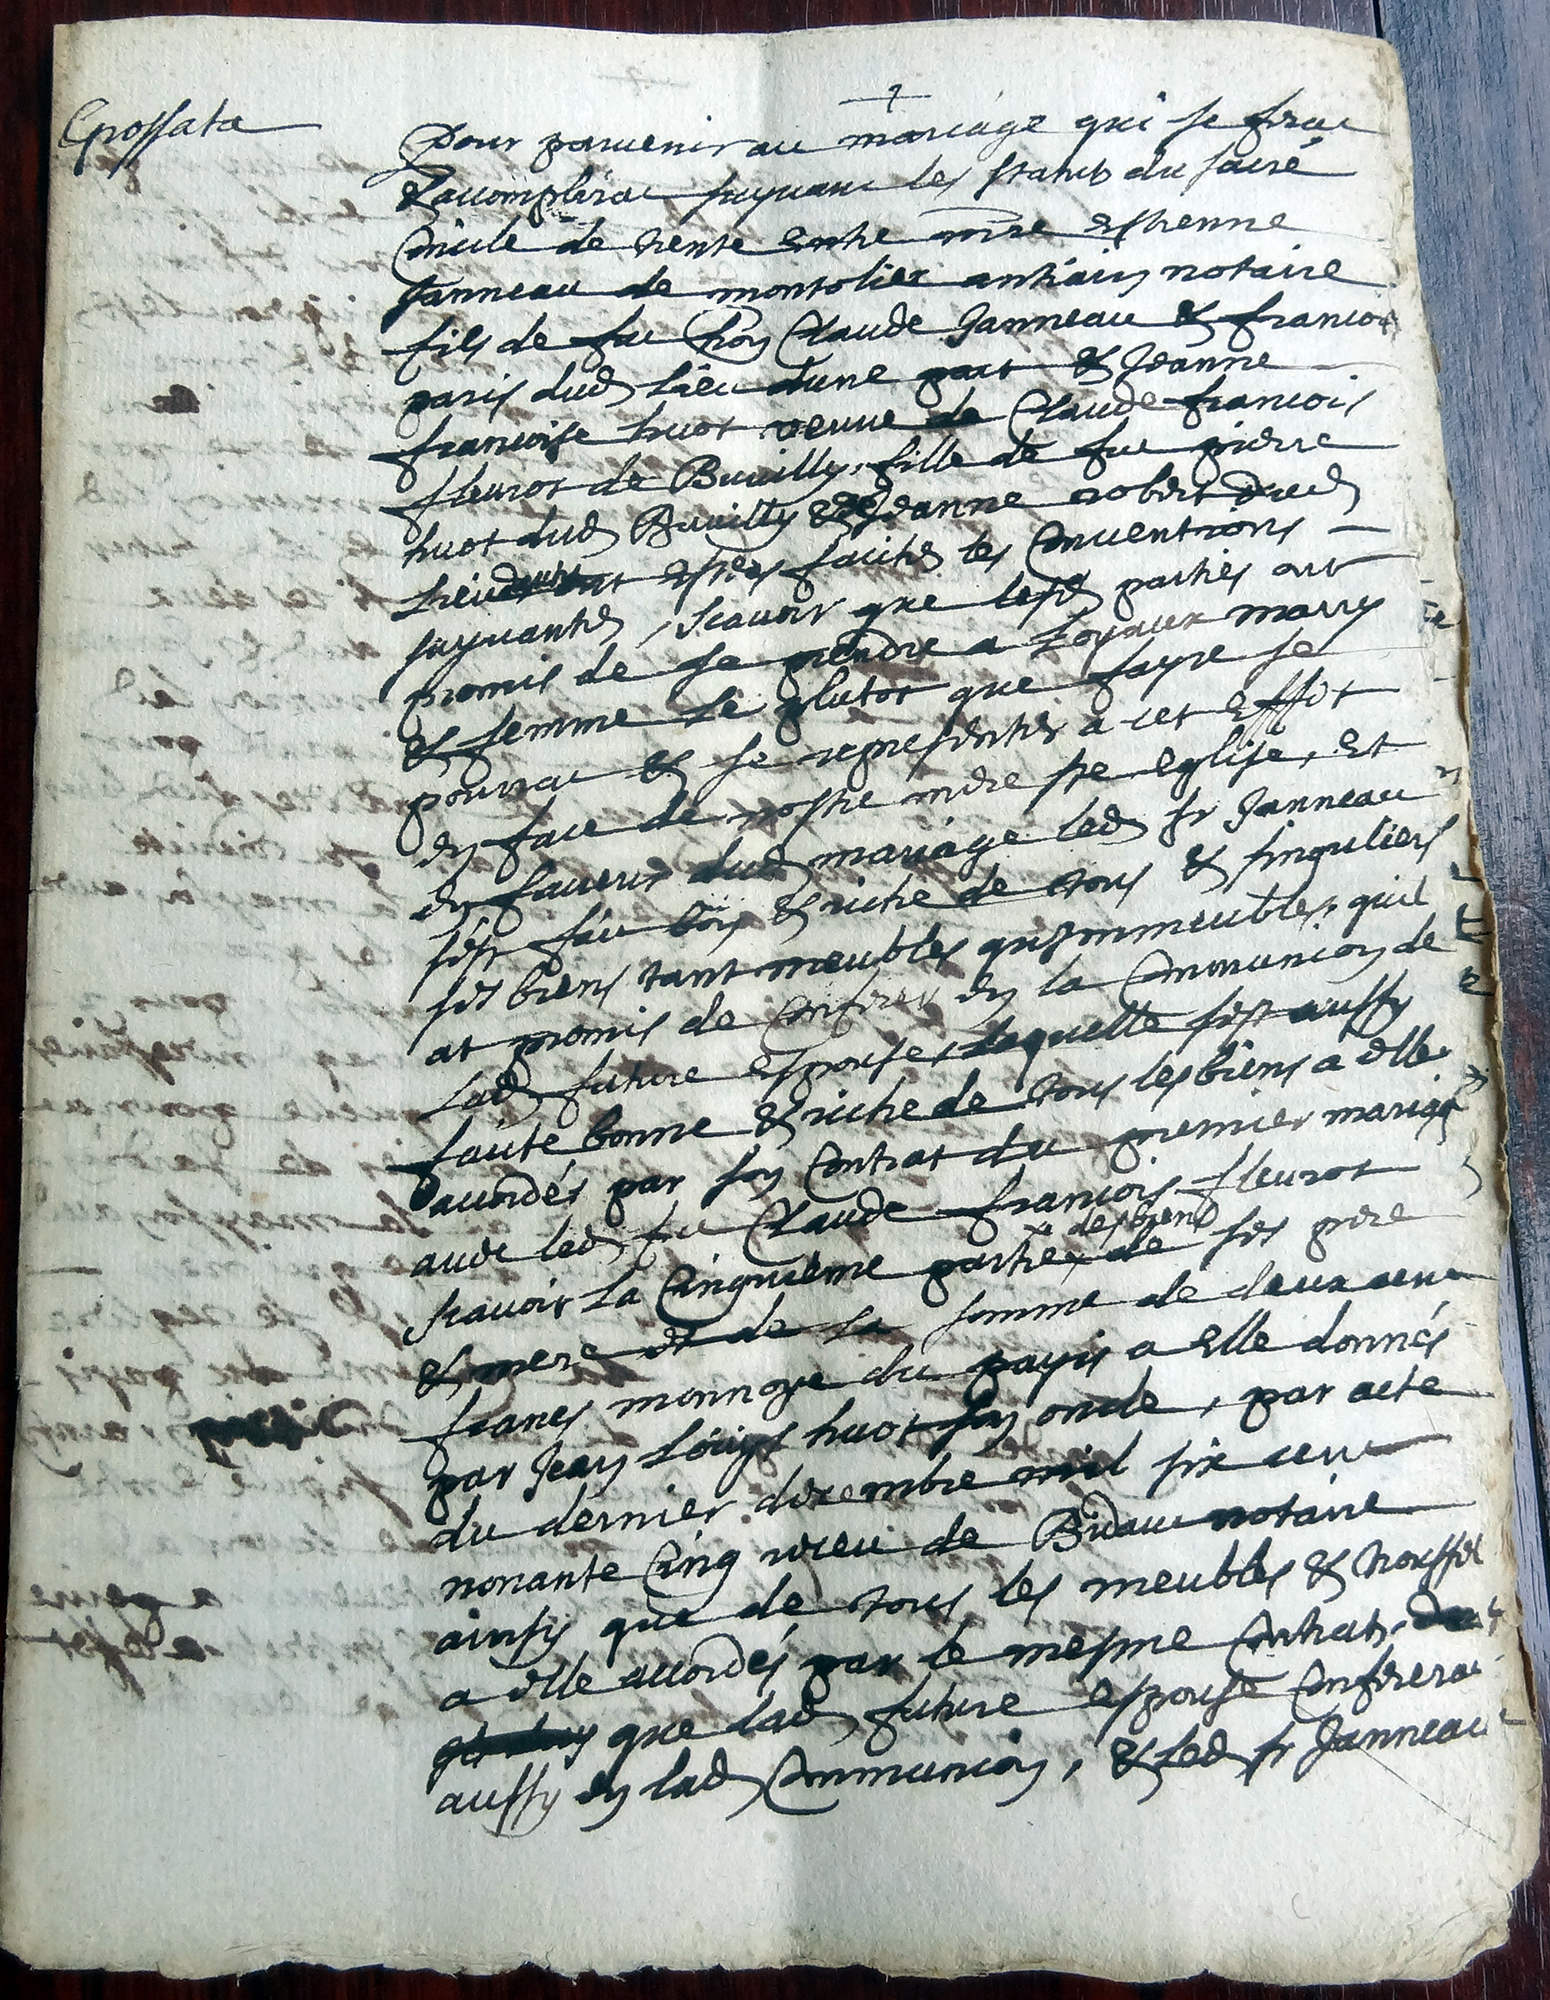 Grossata
Pour paruenir au mariage qui se ferat
& accomplirat suyuant les statuts du sacré
Concile de trente entre mre Estienne
Janneau de montolier antiain notaire
fils de fut hon Claude Janneau & francoi
paris dud lieu d'une part & Jeanne
francoise huot veuue de Claude francois
fleurot de Buuilly, fille de fut pierre
huot dud Buuilly & de Jeanne robert dud
lieu d'autre ont estées faites les Conuentions
suyuantes, scauoir que lesd parties ont
promis de se prendre a loyaux marry
& femme le plutot que fayre se
pourrat & se representer a cet effet
en face de nostre mere ste eglise, et
en faueur dud mariage led sr Janneau
s'est fait bon & riche de tous & singuliers
ses biens tant meubles qu'immeubles, quil
at promis de Conferer en la Communion de
lad future espouse, laquelle s'est aussy
faite bonne & riche de tous les biens a elle
accordés par son Contrat du premier mariage
auec led fut Claude francois fleurot
scauoir la Cinquieme partie des biens de ses pere
& mere et de la somme de deux cent
francs monnoye du payis a elle donnés
par Jean Louys huot son oncle, par acte
du dernier decembre mil six cent
nonante Cinq receu de Bidaut notaire
ainsy que de tous les meubles & trossel
a elle accordés par le mesme Contrat,
que lad future espouse Conferera
aussy en lad Communion, & led sr Janneau